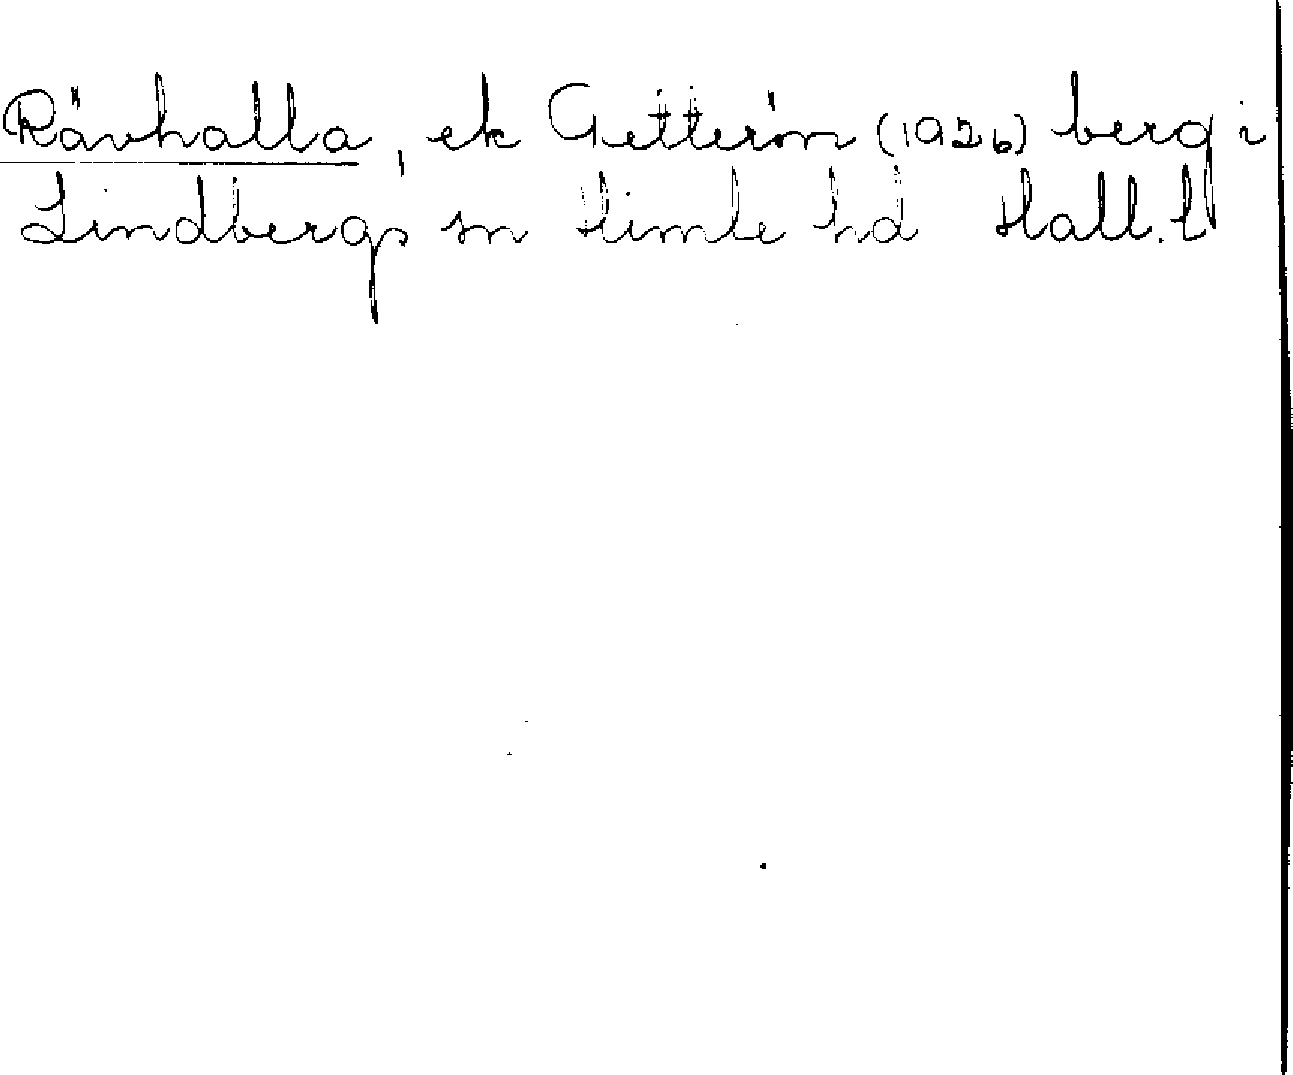 Rävhalla, ek Getterön (1926) berg i
Lindbergs sn Himle hd Hall. l